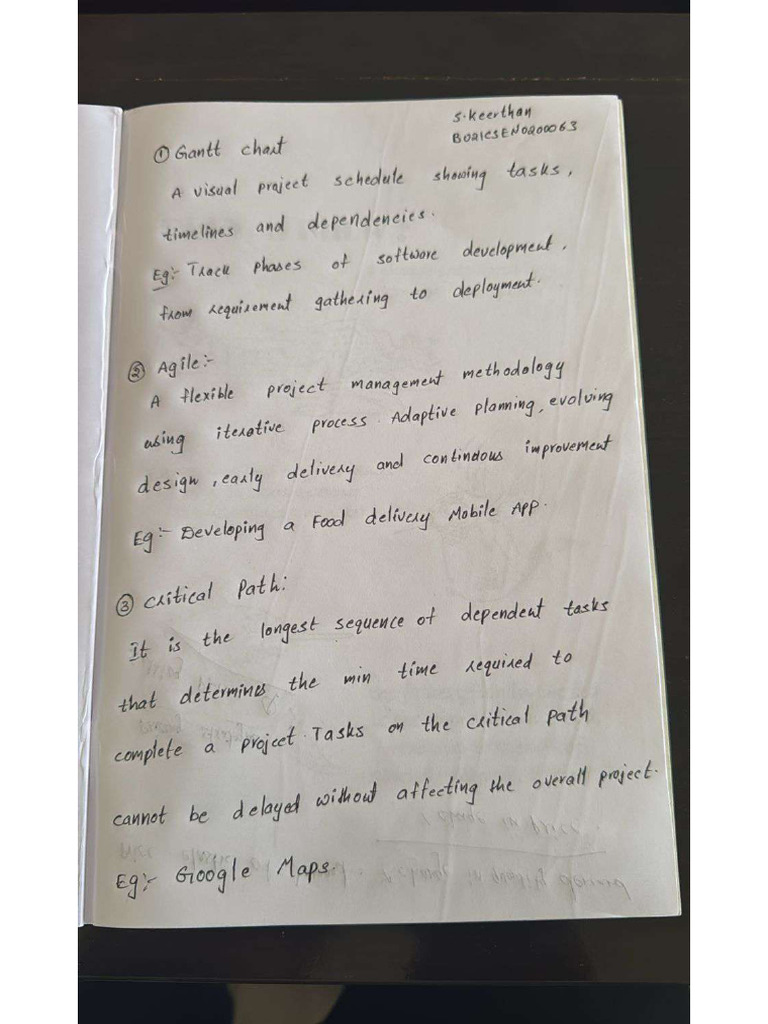 S.Keerthan
BO21CSEN0200063
① Gantt chart
A visual project schedule showing tasks,
timelines and dependencies.
Eg:- Track phases of software development,
from requirement gathering to deployment.
② Agile:-
A flexible project management methodology
using iterative process. Adaptive planning, evolving
design, early delivery and continuous improvement
Eg:- Developing a Food delivery Mobile App.
③ Critical Path:
It is the longest sequence of dependent tasks
that determines the min time required to
complete a project. Tasks on the critical path
cannot be delayed without affecting the overall project.
Eg:- Google Maps.